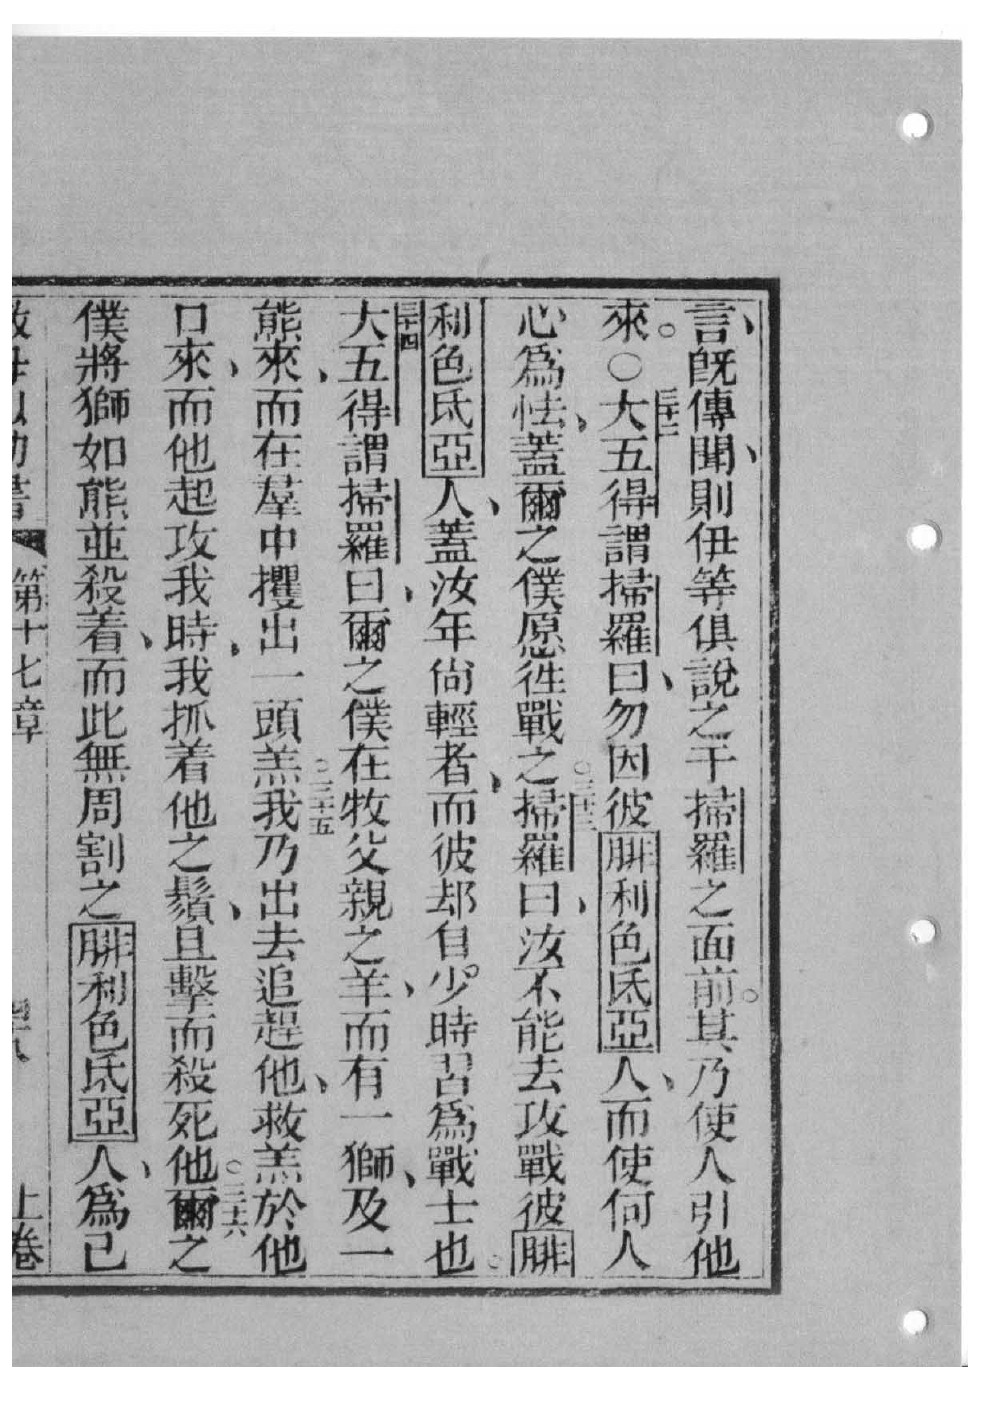 言、既傳聞、則伊等俱說之于掃羅之面前。其乃使人引他
來。○三十二大五得謂掃羅曰、勿因彼腓利色氐亞人、而使何人
心為怯、蓋爾之僕愿徃戰之○三十三掃羅曰、汝不能去攻戰彼腓
利色氐亞人、蓋汝年尙輕者、而彼却自少。時習為戰士也。
三十四大五得謂掃羅曰、爾之僕在牧父親之羊、而有一獅、及一
熊來、而在羣中攫出一頭羔○三十五我乃出去追趕他、救羔於他
口來、而他起攻我時、我抓着他之鬚、且擊而殺死他○三十六爾之
僕將獅如熊並殺着、而此無周割之腓利色氐亞人、為已
第十七章 上卷